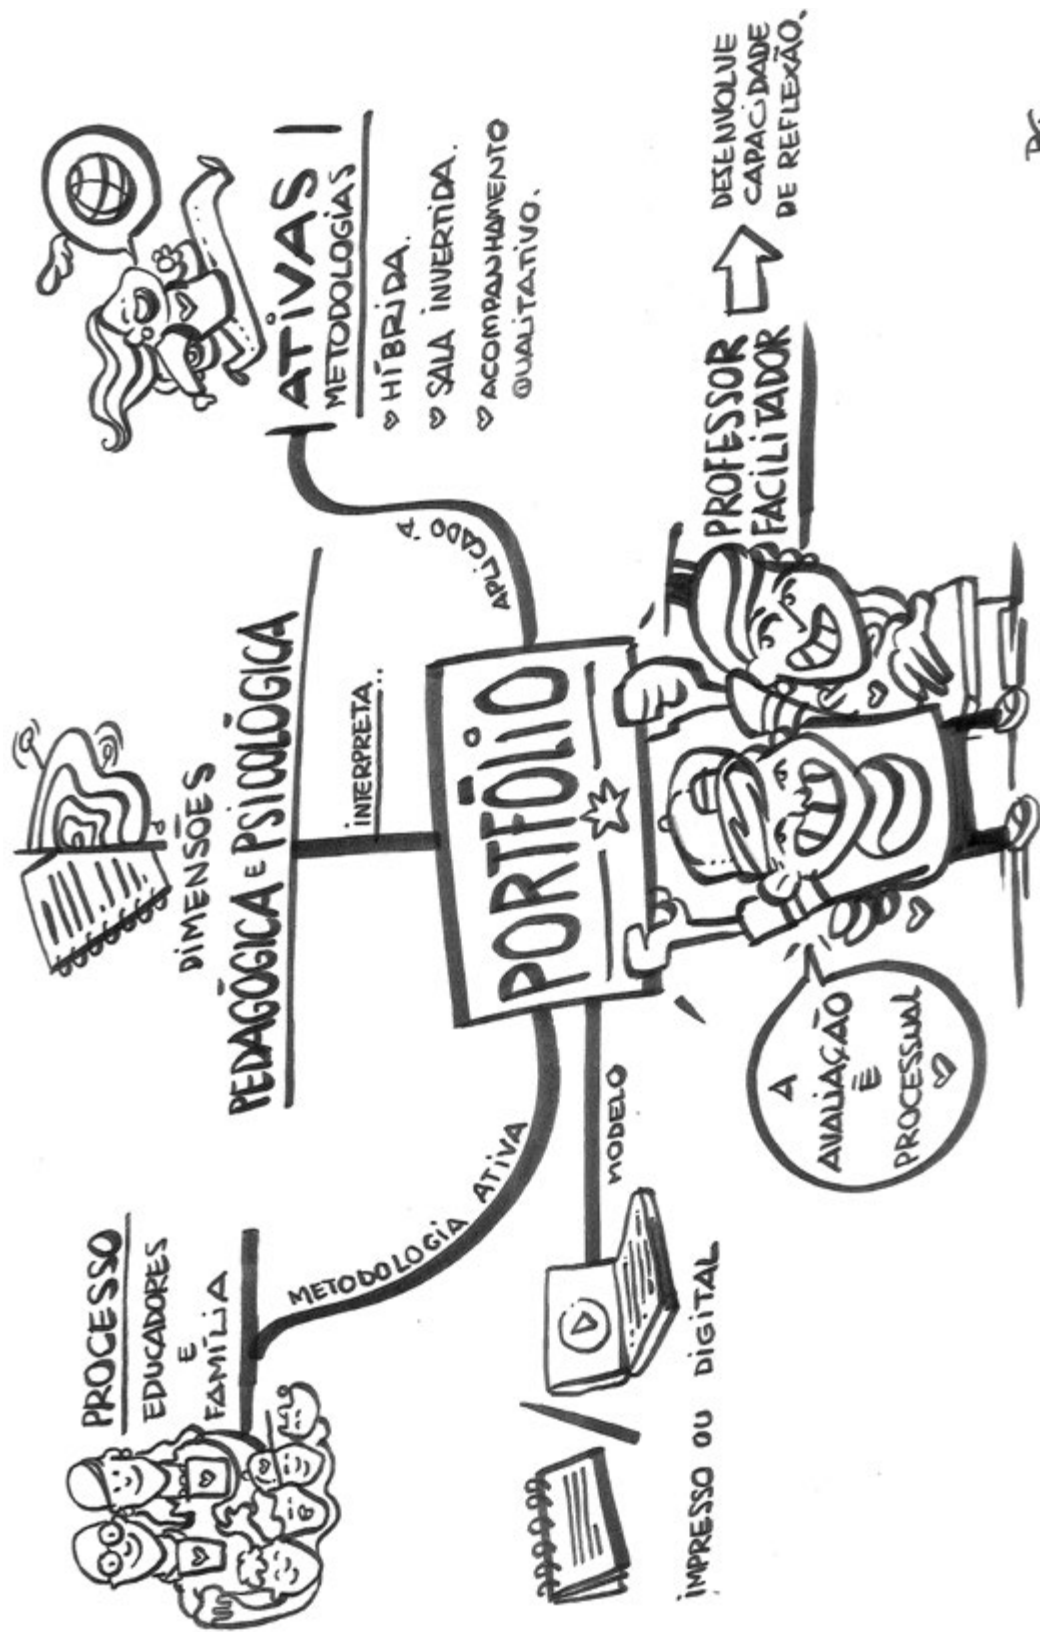 PROCESSO
EDUCADORES
E
FAMÍLIA
METODOLOGIA ATIVA
DIMENSÕES
PEDAGÓGICA E PSICOLÓGICA
INTERPRETA..
ATIVAS
METODOLOGIAS
HÍBRIDA.
SALA INVERTIDA.
ACOMPANHAMENTO
QUALITATIVO.
APLICADO À
PORTFÓLIO
MODELO
IMPRESSO OU DIGITAL
A
AVALIAÇÃO
É
PROCESSUAL
PROFESSOR
FACILITADOR
DESENVOLVE
CAPACIDADE
DE REFLEXÃO.